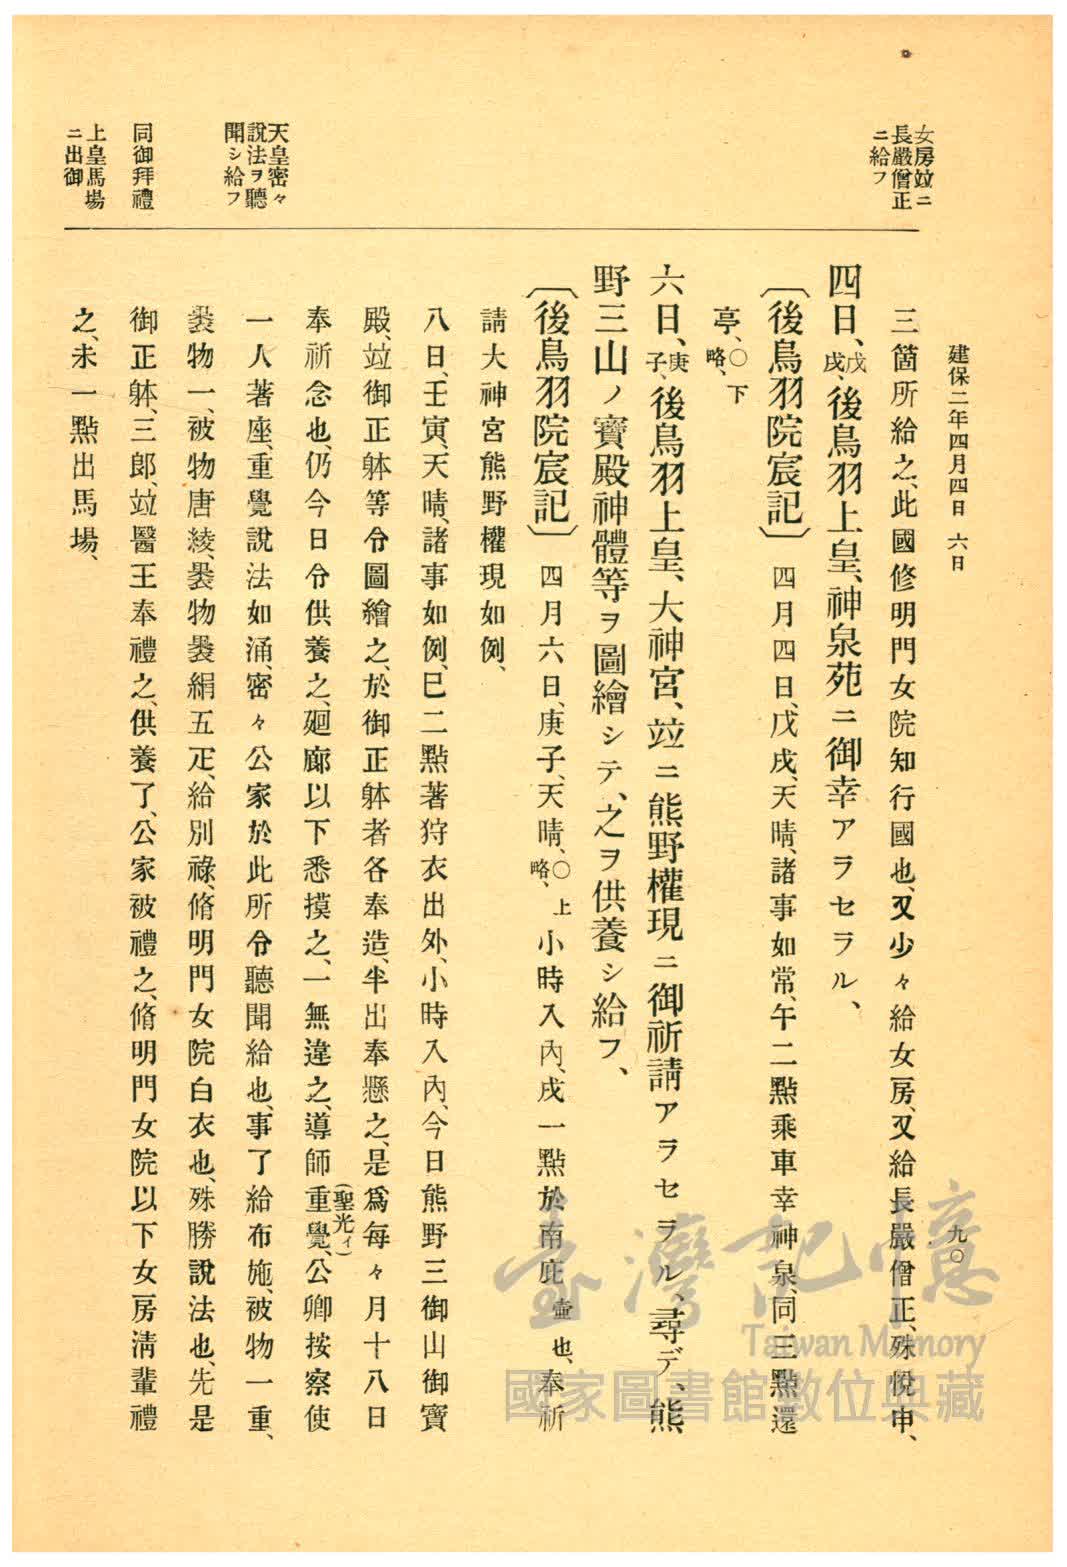 建保二年四月四日 六日
九〇
女房竝ニ
長嚴僧正
ニ給フ
天皇密々
說法ヲ聽
聞シ給フ
同御拜禮
上皇馬場
ニ出御
三箇所給之、此國修明門女院知行國也、又少々給女房、又給長嚴僧正、殊悅申、
四日、戊戌、後鳥羽上皇、神泉苑ニ御幸アラセラル、
〔後鳥羽院宸記〕 四月四日、戊戌、天晴、諸事如常、午二點乘車幸神泉、同三點還
亭、〇下略、
六日、庚子、後鳥羽上皇、大神宮、竝ニ熊野權現ニ御祈請アラセラル、尋デ、熊
野三山ノ寶殿神體等ヲ圖繪シテ、之ヲ供養シ給フ、
〔後鳥羽院宸記〕 四月六日、庚子、天晴、〇上略、小時入內、戌一點於南庇壺也、奉祈
請大神宮熊野權現如例、
八日、壬寅、天晴、諸事如例、巳二點著狩衣出外、小時入內、今日熊野三御山御寶
殿、竝御正躰等令圖繪之、於御正躰者各奉造、半出奉懸之、是爲每々月十八日
奉祈念也、仍今日令供養之、廻廊以下悉摸之、一無違之、導師重覺、(聖光イ)公卿按察使
一人著座、重覺說法如涌、密々公家於此所令聽聞給也、事了給布施、被物一重、
裹物一、被物唐綾、裹物裹絹五疋、給別祿、脩明門女院白衣也、殊勝說法也、先是
御正躰、三郎、竝醫王奉禮之、供養了、公家被禮之、脩明門女院以下女房淸輩禮
之、未一點出馬場、
臺灣記憶
Taiwan Memory
國家圖書館數位典藏